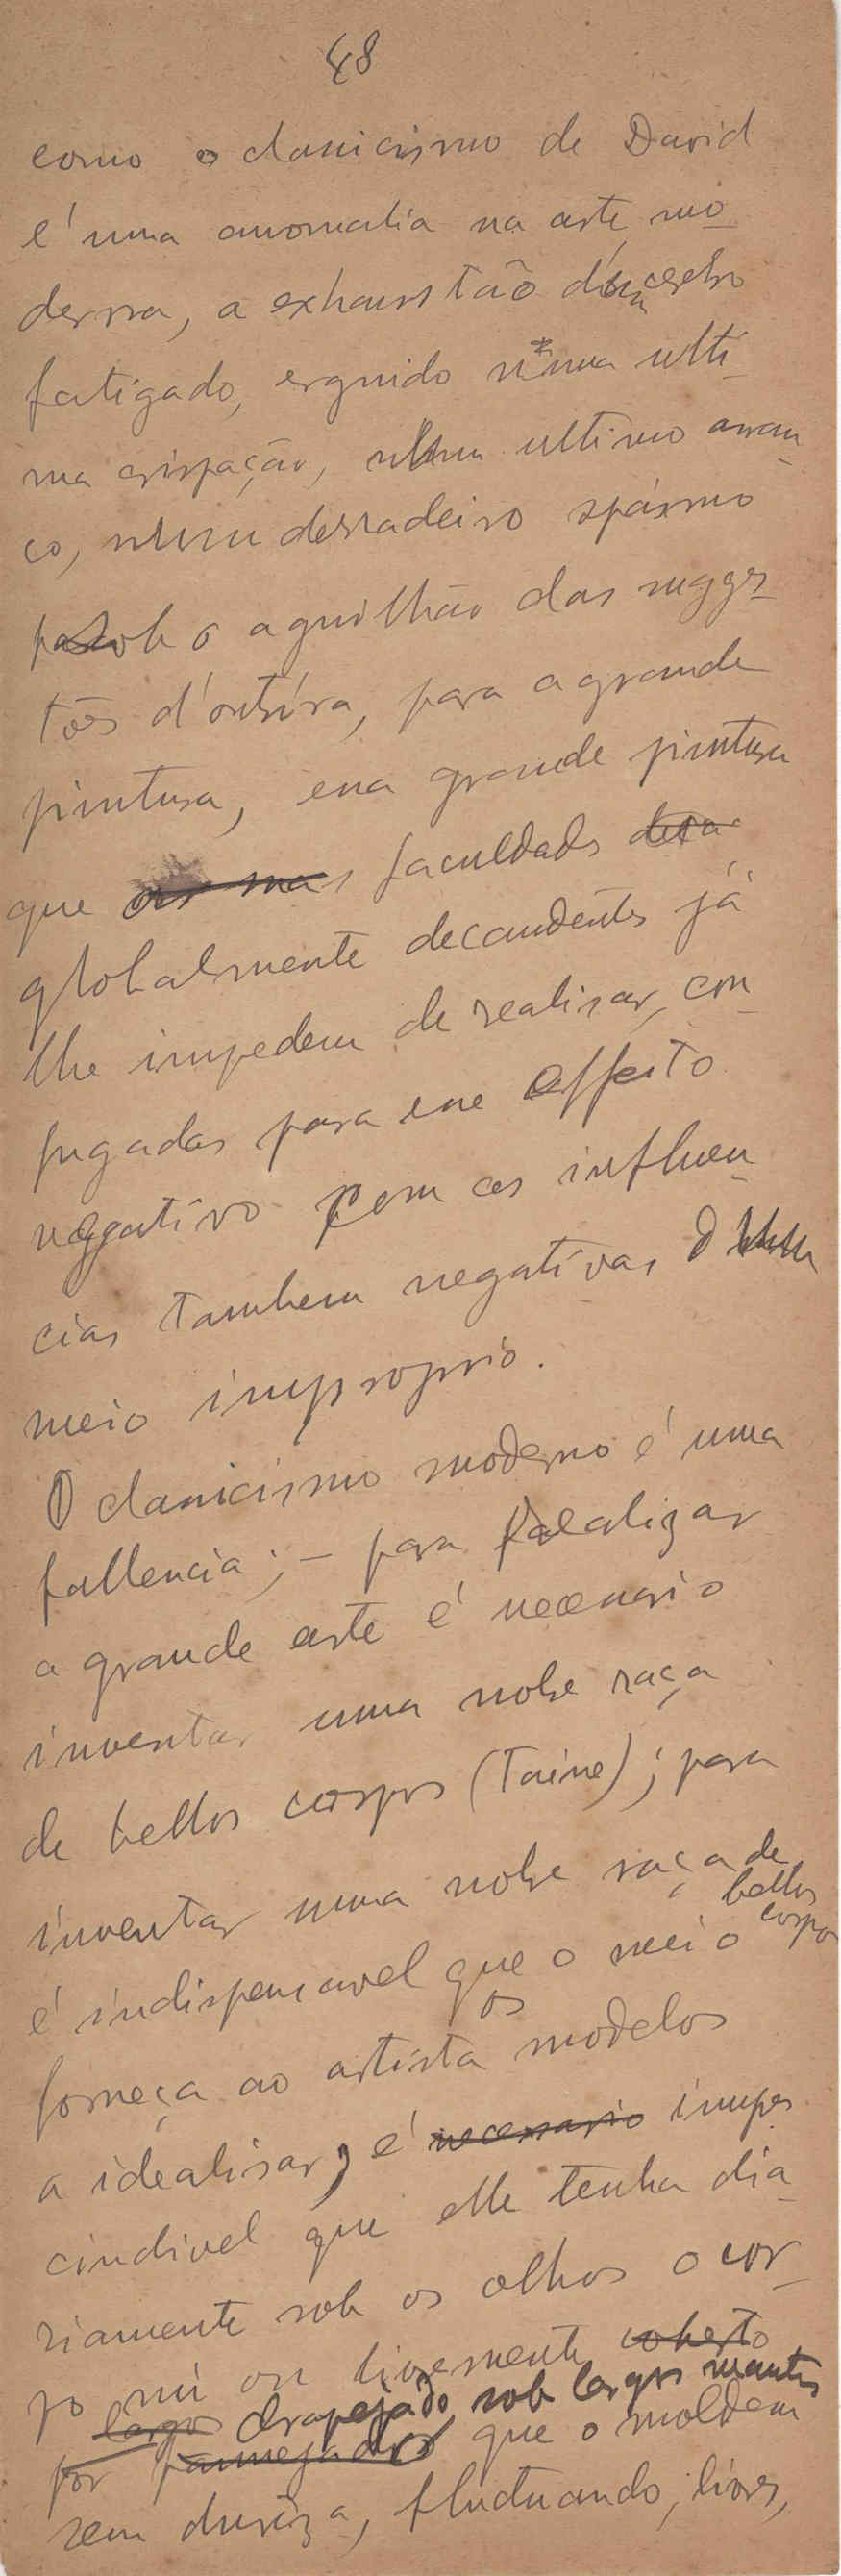 48
como o classicismo de David
é uma anomalia na arte mo-
derna, a exhaustão d'um cerebro
fatigado, erguido n'uma ulti-
ma crispação, num ultimo arran-
co, num derradeiro spasmo
sob o aguilhão das sugges-
tões d'outróra, para a grande
pintura, ena grande pintura
que as mas faculdades desa
globalmente decandentes já
lhe impedem de realisar, con-
jugadas para esse effeito
negativo com as influen-
cias tambem negativas d'um
meio improprio.
O classicismo moderno é uma
fallencia; – para realizar
a grande arte é necessario
inventar uma nobre raça
de bellos corpos (Taine); para
inventar uma nobre raça de bellos corpos
é indispensavel que o meio
forneça ao artista os modelos
a idealisar; é necessario impres
cindivel que elle tenha dia-
riamente sob os olhos o cor-
po nú ou livremente coberto
largos drapejado sob largos mantos
por pannejados que o moldem
sem dureza, fluctuando, livres,